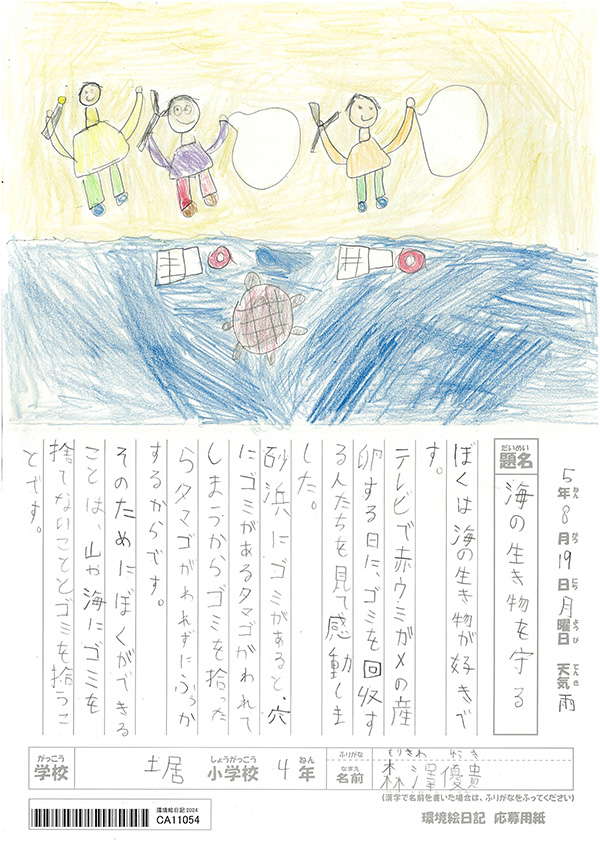 5年8月19日月曜日 天気 雨
ねん がつ にち ようび てんき
だいめい
題名 海の生き物を守る
ぼくは海の生き物が好きで
す。
テレビで赤ウミガメの産
卵する日に、ゴミを回収す
る人たちを見て感動しま
した。
砂浜にゴミがあると、穴
にゴミがあるタマゴがわれて
しまうからゴミを拾った
らタマゴがわれずにふか
するからです。
そのためにぼくができる
ことは、山や海にゴミを
捨てないこととゴミを拾うこ
とです。
がっこう しょうがっこう ねん
学校 土居 小学校 4年
ふりがな もりさわ ゆうき
なまえ
名前 森澤優貴
(漢字で名前を書いた場合は、ふりがなをふってください)
環境絵日記2024
CA11054
環境絵日記 応募用紙